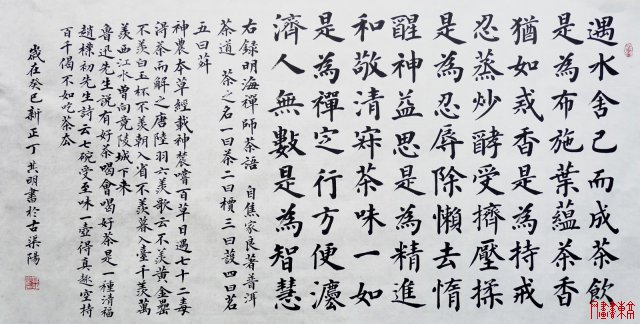 遇水舍己而成茶飲
是為布施葉蘊茶香
猶如戒香是為持戒
忍蒸炒酵受擠壓揉
是為忍辱除懶去惰
醒神益思是為精進
和敬清寂茶味一如
是為禪定行方便灋
濟人無數是為智慧
右録明海禪師茶語 自焦家良著普洱
茶道 茶之名一曰茶二曰檟三曰蔎四曰茗
五曰荈
神農本草經載神農嚐百草日遇七十二毒
得茶而解之唐陸羽六羨歌云不羨黃金罍
不羨白玉杯不羨朝入省不羨暮入臺千羨萬
羨西江水曾向竟陵城下來
魯迅先生説有好茶喝會喝好茶是一種清福
趙樸初先生詩云七碗受至味一壺得真趣空持
百千偈不如吃茶去
歲在癸巳新正丁其明書於古渠陽